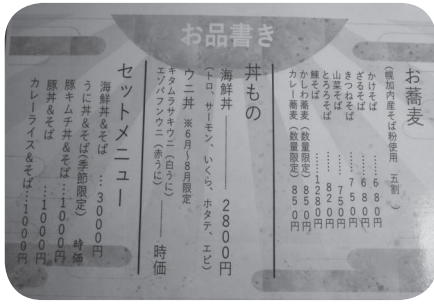 お品書き
お蕎麦
(幌加内産そば粉使用 五割)
かけそば ……… 680円
ざるそば ……… 680円
きつねそば …… 750円
山菜そば ……… 750円
とろろそば …… 820円
鰊そば ……… 1280円
かしわ蕎麦(数量限定) 850円
カレー蕎麦(数量限定) 850円
丼もの
海鮮丼 ──── 2800円
(トロ、サーモン、いくら、ホタテ、エビ)
ウニ丼 ※6月~8月限定
キタムラサキウニ(白うに)
エゾバフンウニ(赤うに) ── 時価
セットメニュー
海鮮丼&そば … 3000円
うに丼&そば(季節限定) 時価
豚キムチ丼&そば … 1000円
豚丼&そば ……… 1000円
カレーライス&そば … 1000円